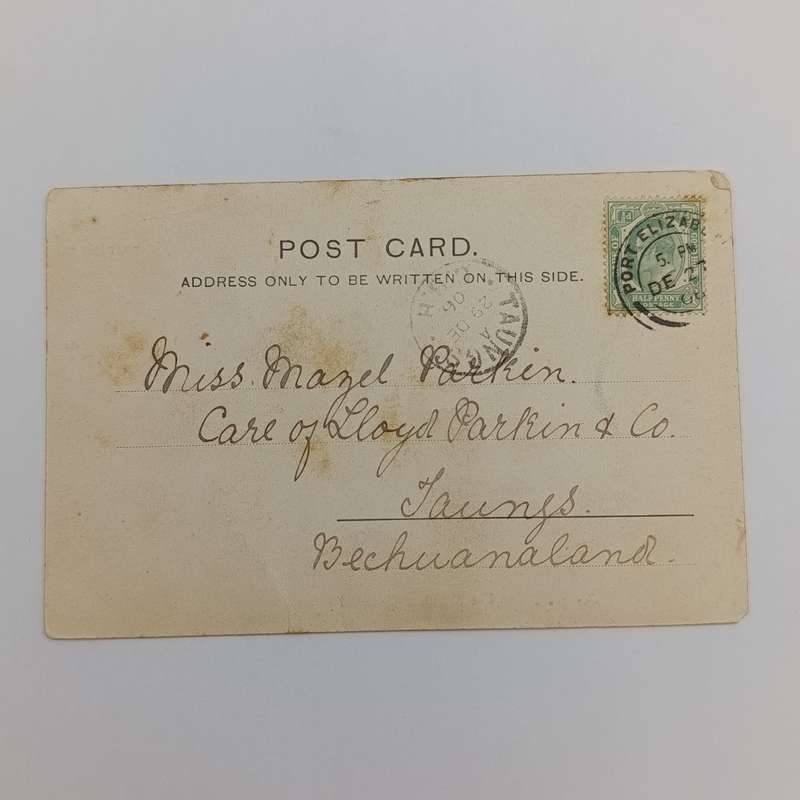 POST CARD.
ADDRESS ONLY TO BE WRITTEN ON THIS SIDE.
HALF PENNY
POSTAGE
PORT ELIZABE
5. PM
DE 2
TAUNGS
A
29 DE
06
Miss. Mazel Parkin.
Care of Lloyd Parkin & Co.
Taungs.
Bechuanaland.